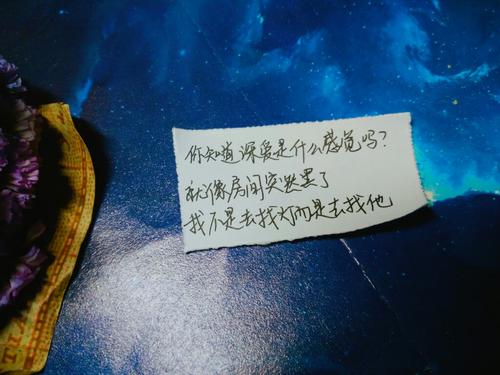 你知道深爱是什么感觉吗?
就像房间突然黑了
我不是去找灯而是去找他